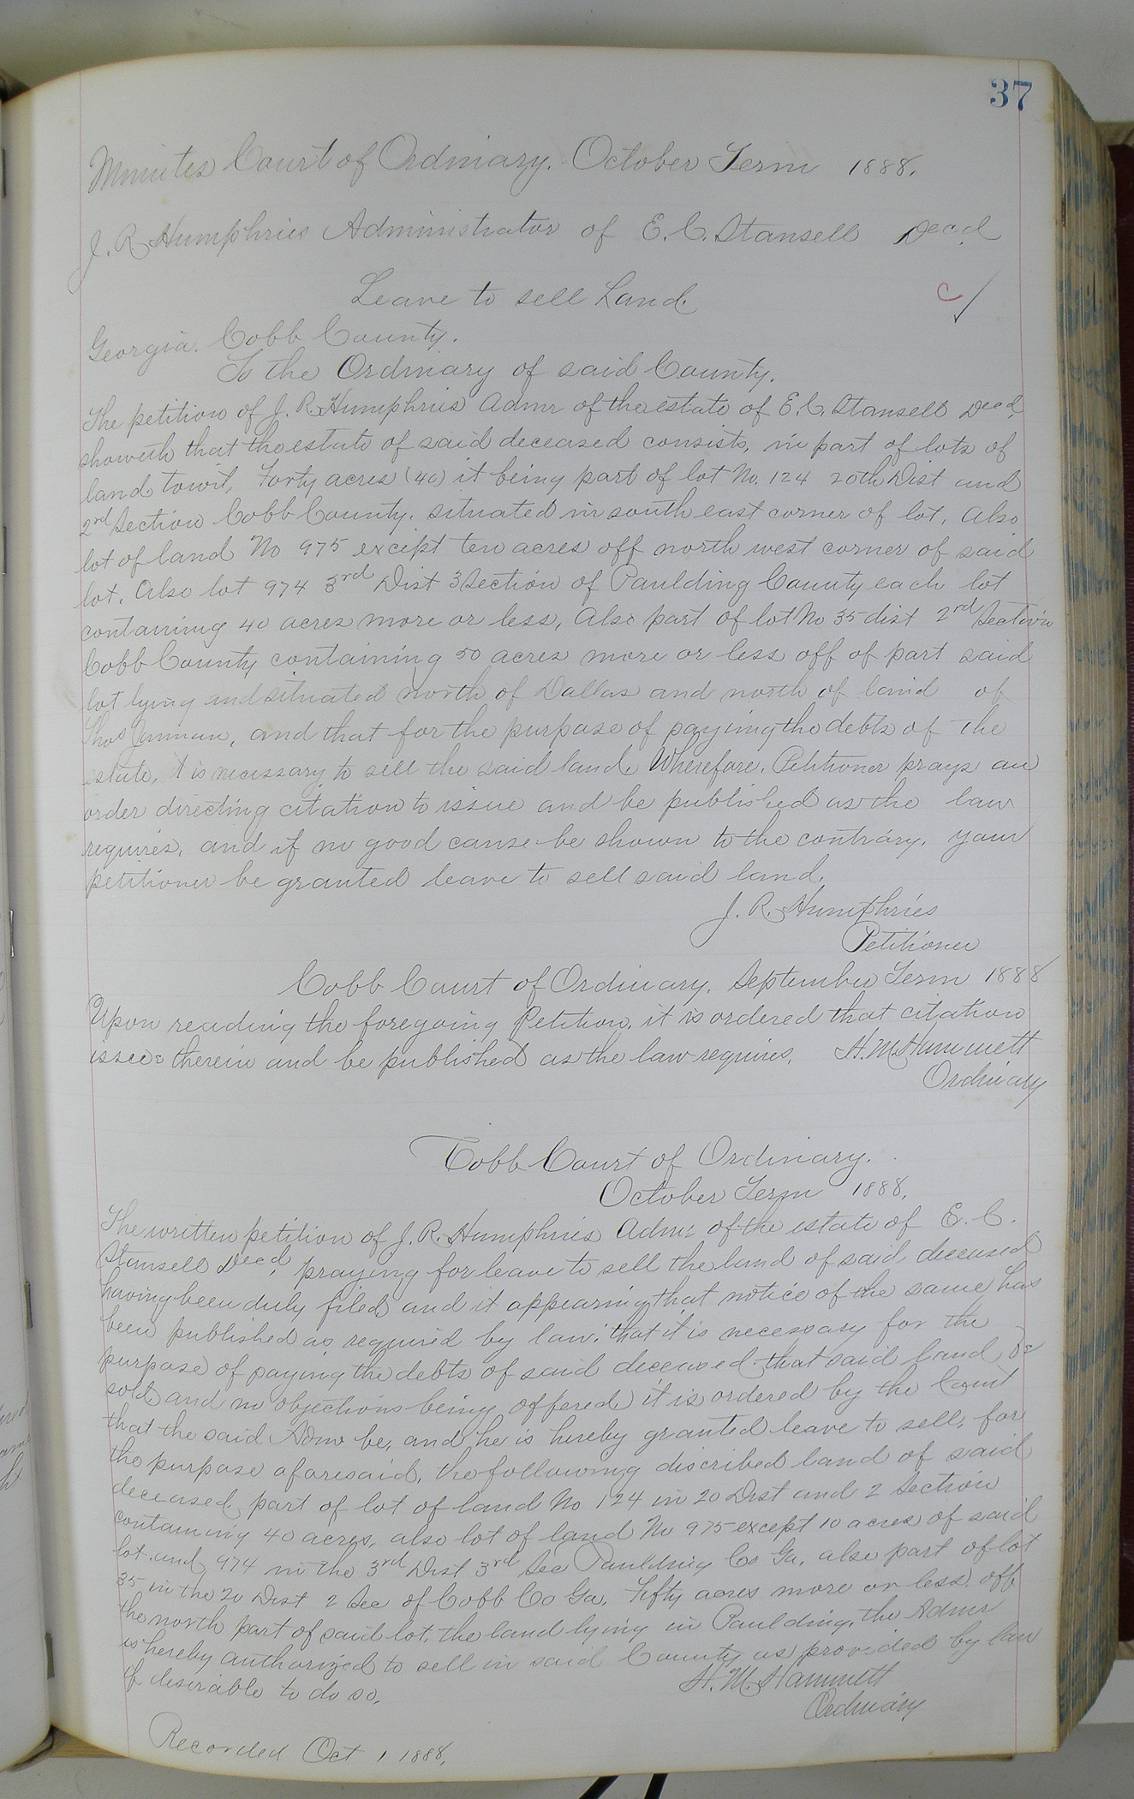 37
Minutes Court of Ordinary. October Term 1888.
J. R. Humphries Administrator of E. C. Stansell Decd
Leave to sell Land.
C ✓
Georgia. Cobb County.
To the Ordinary of said County.
The petition of J. R. Humphries Admr of the estate of E. C. Stansell Decd,
showeth that the estate of said deceased consists, in part of lots of
land towit, Forty acres (40) it being part of lot No. 124 20th Dist and
2nd Section Cobb County. situated in south east corner of lot. Also
lot of land No 975 except ten acres off north west corner of said
lot. Also lot 974 3rd Dist 3 Section of Paulding County each lot
containing 40 acres more or less, Also part of lot No 35 dist 2nd Section
Cobb County containing 50 acres more or less off of part said
lot lying and situated north of Dallas and north of land of
Thos, and that for the purpose of paying the debts of the
estate, it is necessary to sell the said land. Wherefore, Petitioner prays an
order directing citation to issue and be published as the law
requires, and if no good cause be shown to the contrary, your
petitioner be granted leave to sell said land.
J. R. Humphries
Petitioner
Cobb Court of Ordinary. September Term 1888
Upon reading the foregoing Petition, it is ordered that citation
issee therein and be published as the law requires. H. M. Hammett
Ordinary
Cobb Court of Ordinary.
October Term 1888.
The written petition of J. R. Humphries Admr of the estate of E. C.
Stansell Decd, praying for leave to sell the land of said deceased
having been duly filed and it appearing that notice of the same has
been published as required by law; that it is necessary for the
purpose of paying the debts of said deceased that said land be
sold and no objections being offered it is ordered by the Court
that the said Admr be, and he is hereby granted leave to sell, for
the purpose aforesaid, the following discribed land of said
deceased, part of lot of land No 124 in 20 Dist and 2 Section
containing 40 acres, also lot of land No 975 except 10 acres of said
lot and 974 in the 3rd Dist 3rd Sec Paulding Co Ga. also part of lot
35 in the 20 Dist 2 Sec of Cobb Co Ga. Fifty acres more or less off
the north part of said lot, the land lying in Paulding, the Admr
is hereby authorized to sell in said County as provided by law
if desirable to do so.
H. M. Hammett
Ordinary
Recorded Oct 1 1888.